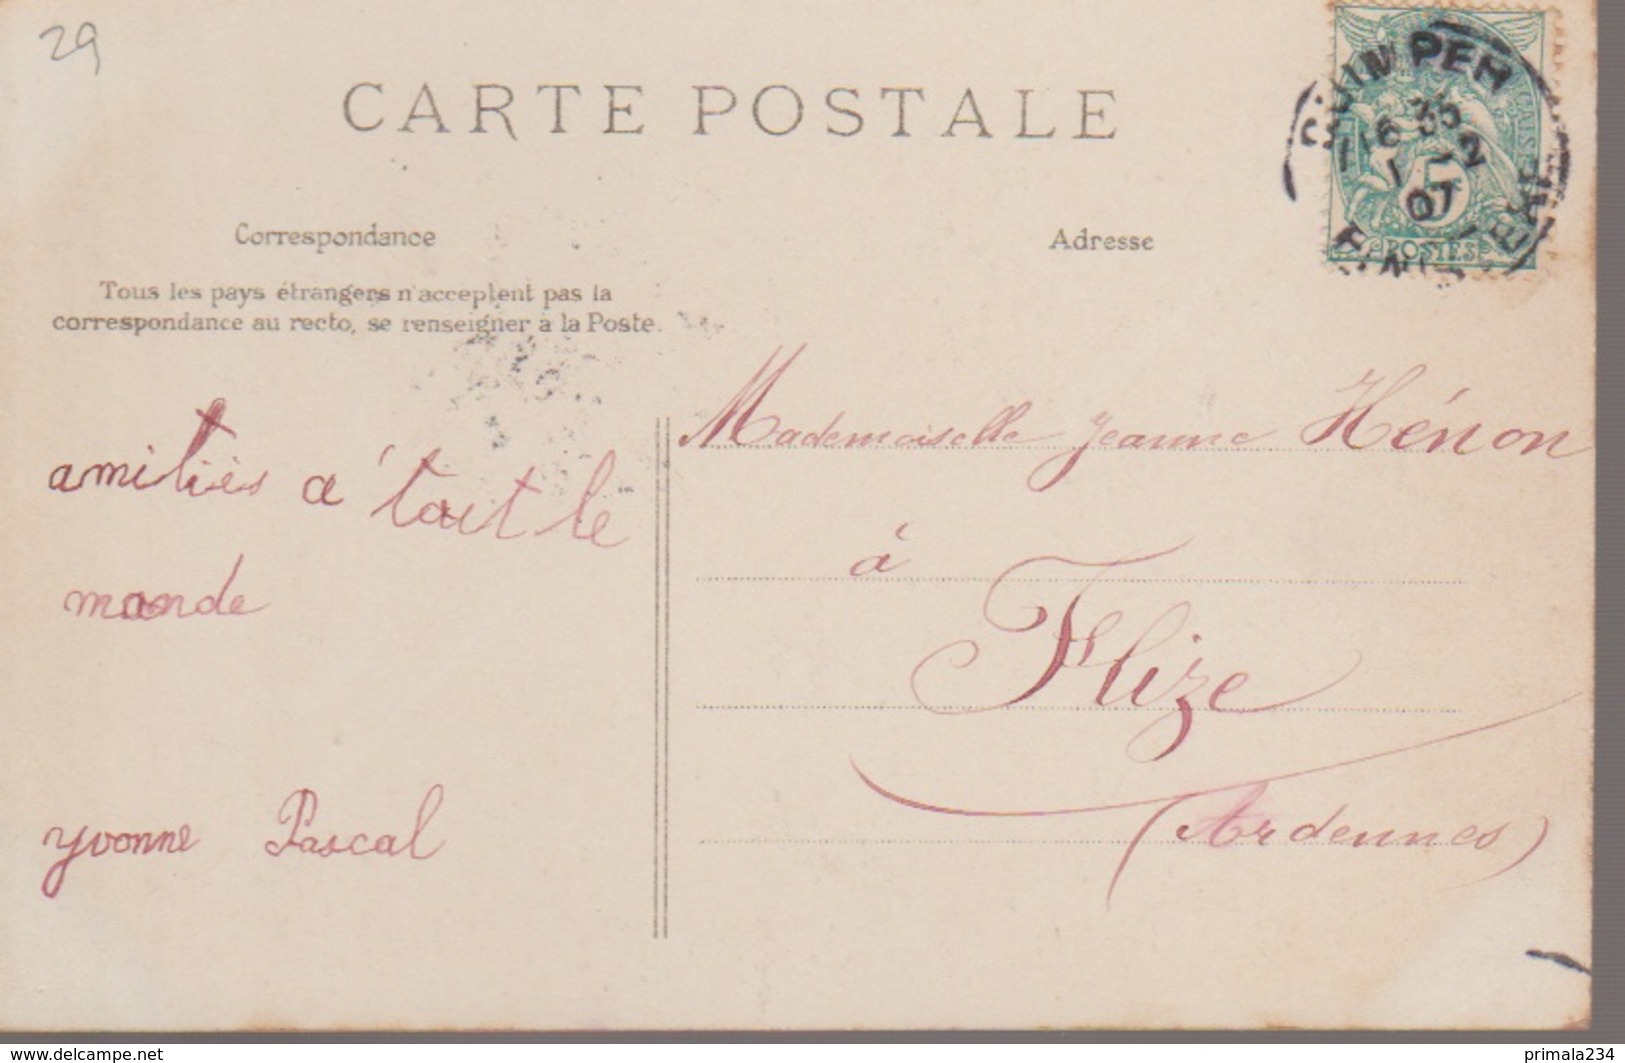 29
CARTE POSTALE
QUIMPER
16 35
1 - 2
07
FINISTERE
5c
POSTES
Correspondance
Adresse
Tous les pays étrangers n'acceptent pas la
correspondance au recto, se renseigner à la Poste.
amitiés a' tout le
monde
yvonne Pascal
Mademoiselle Jeanne Hénon
à
Flize
(Ardennes)
www.delcampe.net
primala234